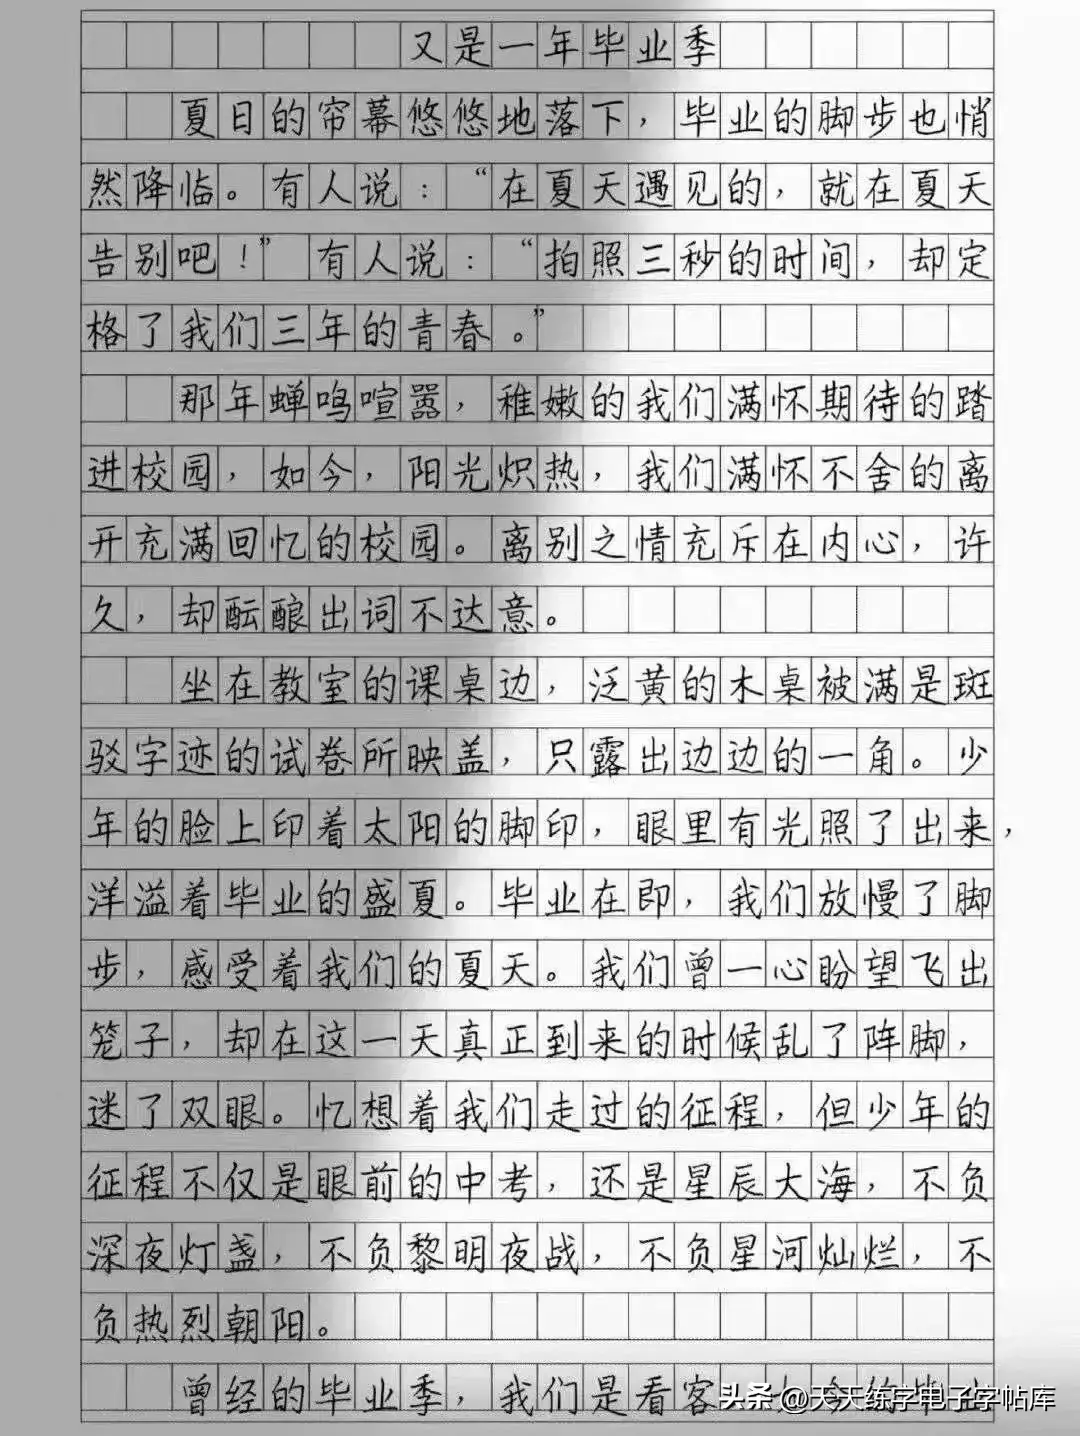 又是一年毕业季
夏日的帘幕悠悠地落下，毕业的脚步也悄
然降临。有人说：“在夏天遇见的，就在夏天
告别吧！”有人说：“拍照三秒的时间，却定
格了我们三年的青春。”
那年蝉鸣喧嚣，稚嫩的我们满怀期待的踏
进校园，如今，阳光炽热，我们满怀不舍的离
开充满回忆的校园。离别之情充斥在内心，许
久，却酝酿出词不达意。
坐在教室的课桌边，泛黄的木桌被满是斑
驳字迹的试卷所映盖，只露出边边的一角。少
年的脸上印着太阳的脚印，眼里有光照了出来，
洋溢着毕业的盛夏。毕业在即，我们放慢了脚
步，感受着我们的夏天。我们曾一心盼望飞出
笼子，却在这一天真正到来的时候乱了阵脚，
迷了双眼。忆想着我们走过的征程，但少年的
征程不仅是眼前的中考，还是星辰大海，不负
深夜灯盏，不负黎明夜战，不负星河灿烂，不
负热烈朝阳。
曾经的毕业季，我们是看客
头条@天天练字电子字帖库